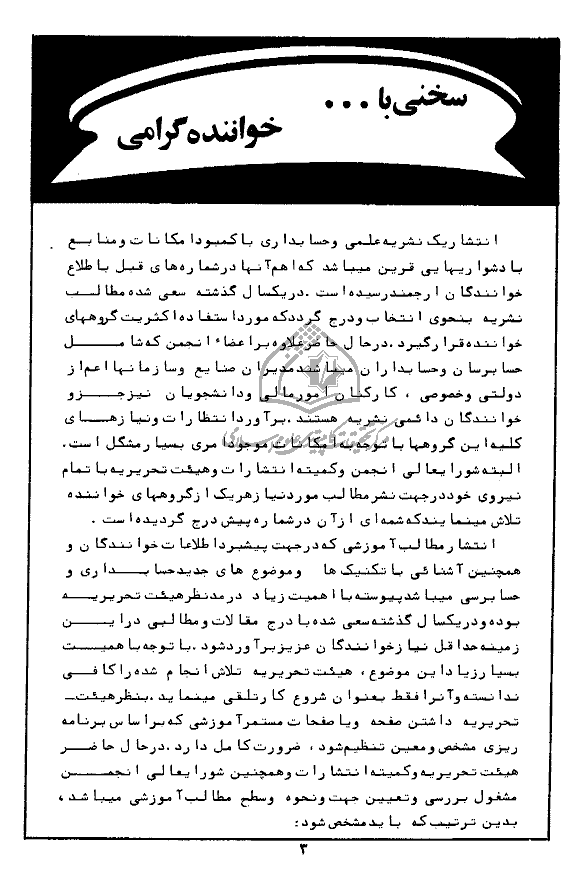 سخنی با ...
خواننده گرامی
انتشار یک نشریه علمی وحسابداری با کمبود امکانات ومنابع
با دشواریهایی قرین میباشد که اهم آنها در شماره های قبل باطلاع
خوانندگان ارجمند رسیده است . در یکسال گذشته سعی شده مطالب
نشریه بنحوی انتخاب ودرج گردد که مورد استفاده اکثریت گروههای
خواننده قرار گیرد . در حال حاضر علاوه بر اعضاء انجمن که شامل
حسابرسان وحسابداران میباشند مدیران صنایع وسازمانها اعم از
دولتی وخصوصی ، کارکنان امور مالی ودانشجویان نیز جزو
خوانندگان دائمی نشریه هستند . برآورد انتظارات ونیازهای
کلیه این گروهها با توجه به امکانات موجود امری بسیار مشگل است .
البته شورایعالی انجمن وکمیته انتشارات وهیئت تحریریه با تمام
نیروی خود در جهت نشر مطالب مورد نیاز هریک از گروههای خواننده
تلاش مینمایند که شمه ای از آن در شماره پیش درج گردیده است .
انتشار مطالب آموزشی که در جهت پیشبرد اطلاعات خوانندگان و
همچنین آشنائی با تکنیک ها وموضوع های جدید حسابداری و
حسابرسی میباشد پیوسته با اهمیت زیاد در مد نظر هیئت تحریریه
بوده ودر یکسال گذشته سعی شده با درج مقالات ومطالبی در این
زمینه حداقل نیاز خوانندگان عزیز برآورد شود . با توجه با همیت
بسیار زیاد این موضوع ، هیئت تحریریه تلاش انجام شده را کافی
ندانسته وآنرا فقط بعنوان شروع کار تلقی مینماید . بنظر هیئت
تحریریه داشتن صفحه ویا صفحات مستمر آموزشی که بر اساس برنامه
ریزی مشخص ومعین تنظیم شود ، ضرورت کامل دارد . در حال حاضر
هیئت تحریریه وکمیته انتشارات وهمچنین شورایعالی انجمن
مشغول بررسی وتعیین جهت ونحوه وسطح مطالب آموزشی میباشد ،
بدین ترتیب که باید مشخص شود :
۳